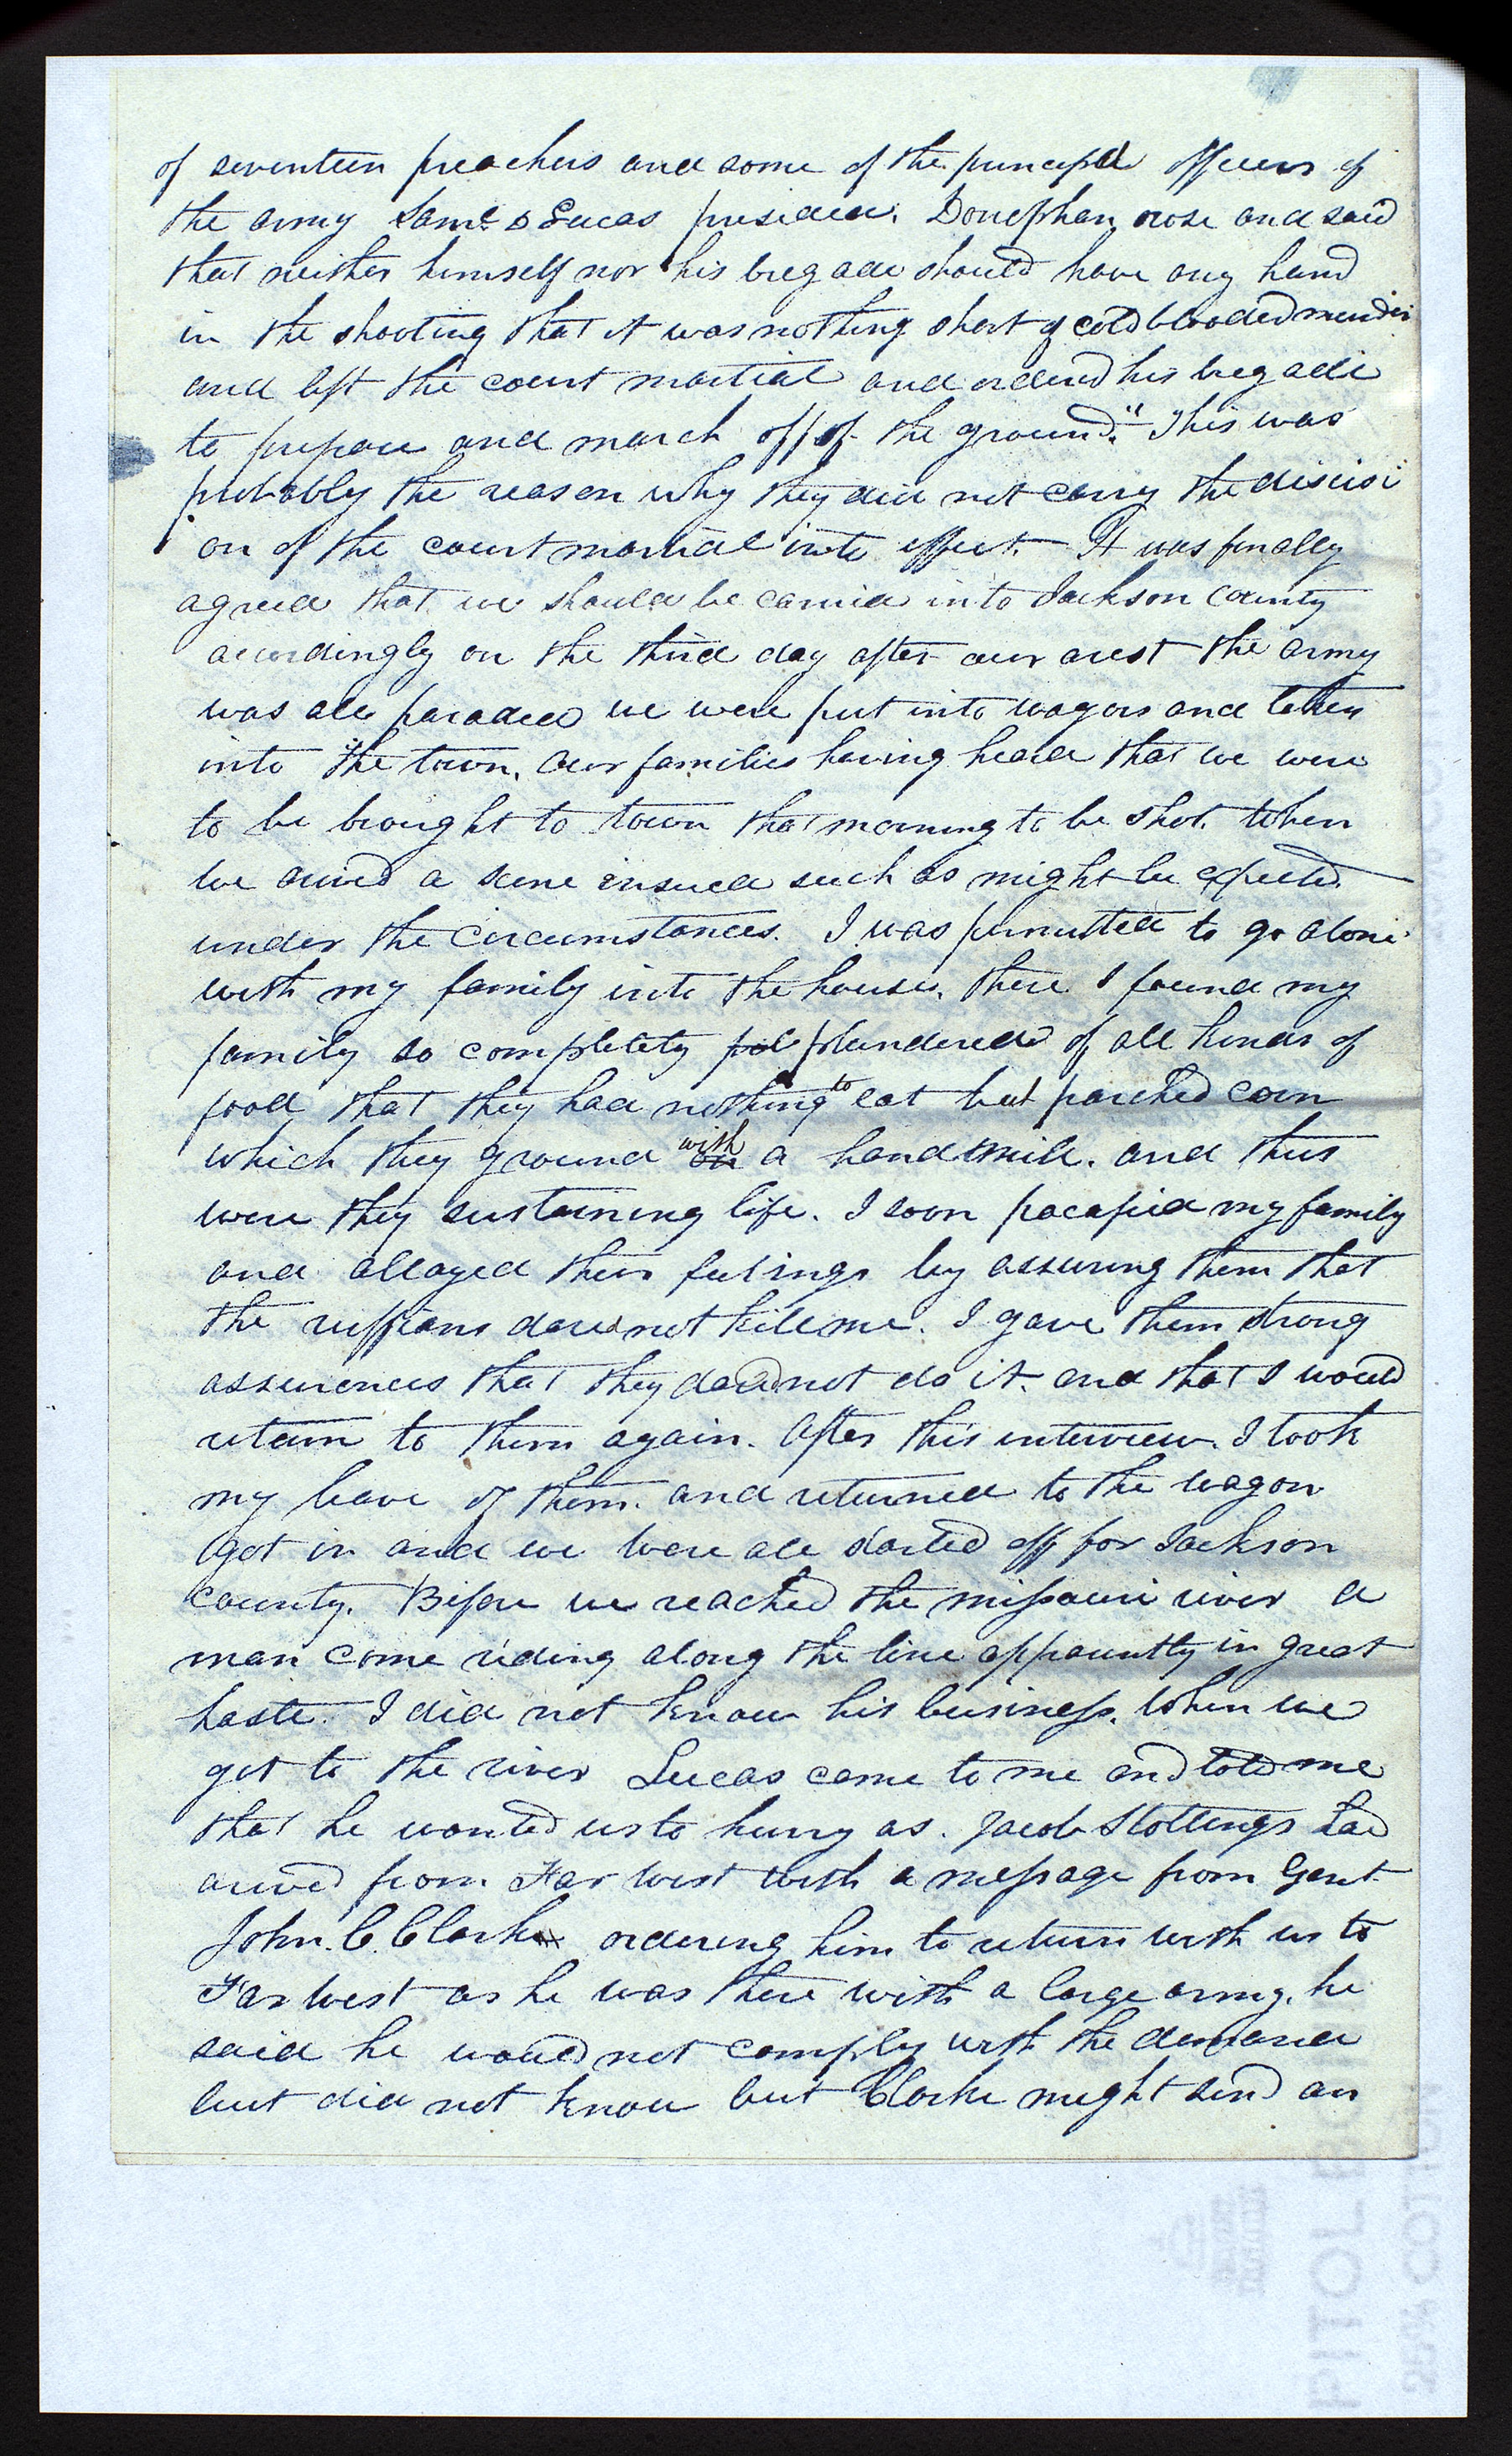 of seventeen preachers and some of the principal officers of
the army Saml D Lucas presided. Donephan rose and said
that neither himself nor his bregade should have any hand
in the shooting that it was nothing short of cold blooded murder
and left the court martial and ordered his bregade
to prepare and march off of the ground." This was
probably the reason why they did not carry the discisi
on of the court martial into effect. It was finally
agreed that we should be carried into Jackson county
accordingly on the third day after our arest the army
was all paraded we were put into wagons and taken
into the town. Our families having heard that we were
to be brought to town that morning to be shot. When
we arived a scene ensued such as might be expected
under the circumstances. I was permitted to go alone
with my family into the house, there I found my
family so completely pol plundered of all kinds of
food that they had nothing to eat but parched corn
which they ground on with a handmill. and thus
were they sustaining life. I soon pacafied my family
and allayed their feelings by assuring them that
the ruffians dared not kill me. I gave them strong
assurences that they dared not do it. and that I would
return to them again. After this interview. I took
my leave of them. and returned to the wagon
got in and we were all started off for Jackson
county. Before we reached the missouri river a
man come riding along the line apparently in great
haste. I did not know his business. When we
got to the river Lucas came to me and told me
that he wanted us to hurry as. Jacob Stollings had
arived from Far West with a message from Genl.
John. C. Clark ordering him to return with us to
Far West as he was there with a large army. he
said he would not comply with the demand
but did not know but Clarke might send an